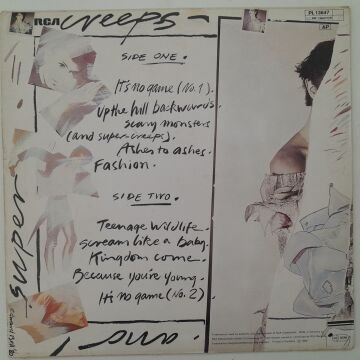 RCA creeps
PL 13647
AP
SIDE ONE.
It's no game (No. 1)
up the hill backwards.
scary monsters
(and super-creeps).
Ashes to ashes.
Fashion.
SIDE TWO.
Teenage wildlife.
scream like a Baby.
Kingdom come.
Because you're young.
It's no game (No. 2)
super
and